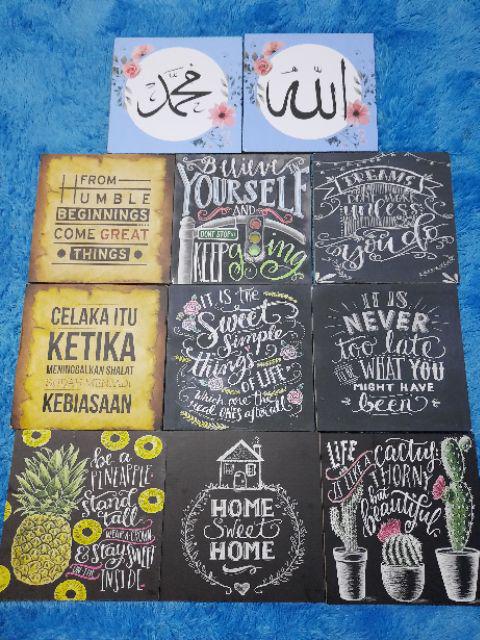 محمد
الله
FROM
HUMBLE
BEGINNINGS
COME GREAT
THINGS
Believe
YOURSELF
AND
DON'T STOP
KEEP going
DREAMS
DON'T WORK
unless
you do
CELAKA ITU
KETIKA
MENINGGALKAN SHALAT
SUDAH MENJADI
KEBIASAAN
IT IS the
Sweet
simple
things
OF LIFE
Which are the
real ONES after all
IT IS
NEVER
too late
WHAT YOU
MIGHT HAVE
been
be a
PINEAPPLE
stand
tall
WEAR A CROWN
& STAY SWEET
INSIDE
HOME
Sweet
HOME
LIFE
IS LIKE A
cactus
THORNY
but
beautiful